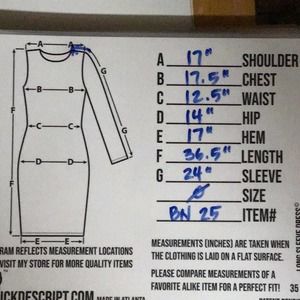 A 17" SHOULDER
B 17.5" CHEST
C 12.5" WAIST
D 14" HIP
E 17" HEM
F 36.5" LENGTH
G 24" SLEEVE
Ø SIZE
BN 25 ITEM#
A
G
B B
C C
F F
G
D D
E E
RAM REFLECTS MEASUREMENT LOCATIONS
VISIT MY STORE FOR MORE ITEMS
CKDESCRIPT.COM MADE IN ATLANTA
MEASUREMENTS (INCHES) ARE TAKEN WHEN
THE CLOTHING IS LAID ON A FLAT SURFACE.
PLEASE COMPARE MEASUREMENTS OF A
SIMILAR ALIKE ITEM FOR A PERFECT FIT!
LONG SLEEVE DRESS
35